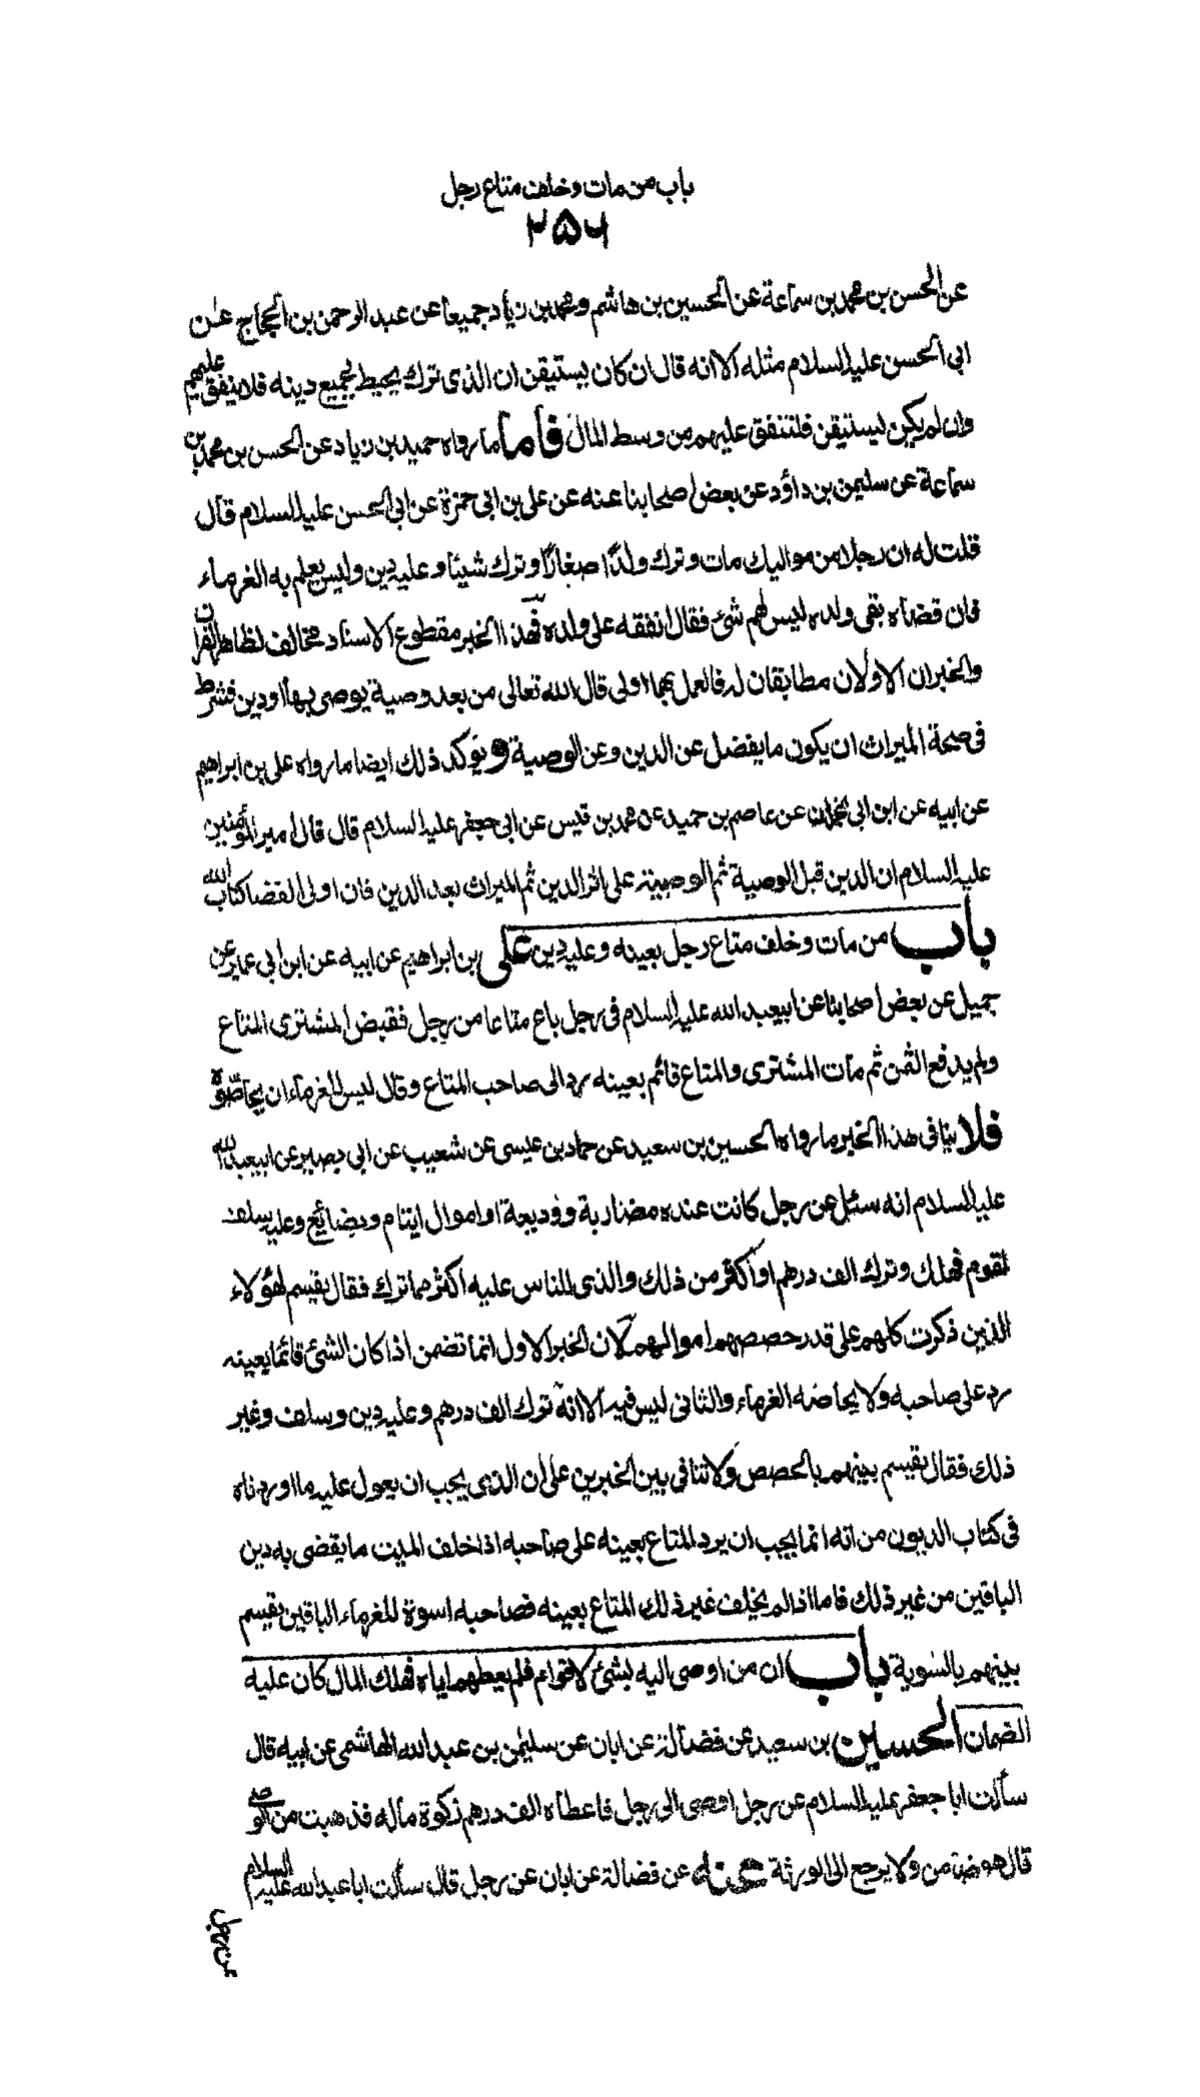 باب من مات وخلف متاع رجل
۲۵۶
عن الحسن بن محمد بن سماعة عن الحسين بن هاشم ومحمد بن زياد جميعا عن عبد الرحمن بن الحجاج عن
ابي الحسن عليه السلام مثله الا انه قال ان كان يستيقن ان الذى ترك يحيط بجميع دينه فلا ينفق عليهم
وان لم يكن يستيقن فلتنفق عليهم من وسط المال فاما ما رواه حميد بن زياد عن الحسن بن محمد بن
سماعة عن سليمن بن داؤد عن بعض اصحابنا عنه عن على بن ابى حمزة عن ابى الحسن عليه السلام قال
قلت له ان رجلا من مواليك مات وترك ولدًا صغارًا وترك شيئا وعليه دين وليس يعلم به الغرماء
فان قضاه بقى ولده ليس لهم شئ فقال انفقه على ولده فهذا الخبر مقطوع الاسناد مخالف لظاهر القران
والخبران الاولان مطابقان له فالعمل بهما اولى قال الله تعالى من بعد وصية يوصى بها او دين فشرط
فى صحة الميراث ان يكون ما يفضل عن الدين وعن الوصية ويؤكد ذلك ايضا ما رواه على بن ابراهيم
عن ابيه عن ابن ابى نجران عن عاصم بن حميد عن محمد بن قيس عن ابى جعفر عليه السلام قال قال امير المؤمنين
عليه السلام ان الدين قبل الوصية ثم الوصية على اثر الدين ثم الميراث بعد الدين فان اولى القضا كتاب الله
باب من مات وخلف متاع رجل بعينه وعليه دين على بن ابراهيم عن ابيه عن ابن ابى عمير عن
جميل عن بعض اصحابنا عن ابيعبد الله عليه السلام فى رجل باع متاعا من رجل فقبض المشترى المتاع
ولم يدفع الثمن ثم مات المشترى والمتاع قائم بعينه رد الى صاحب المتاع وقال ليس للغرماء ان يحاصّوه
فلا ينافى هذا الخبر ما رواه الحسين بن سعيد عن حماد بن عيسى عن شعيب عن ابى بصير عن ابيعبد الله
عليه السلام انه سئل عن رجل كانت عنده مضاربة ووديعة او اموال ايتام وبضائع وعليه سلف
لقوم فهلك وترك الف درهم او اكثر من ذلك والذى للناس عليه اكثر مما ترك فقال يقسم لهؤلاء
الذين ذكرت كلهم على قدر حصصهم اموالهم لان الخبر الاول انما تضمن اذا كان الشئ قائما بعينه
رد على صاحبه ولا يحاصه الغرماء والثانى ليس فيه الا انه ترك الف درهم وعليه دين وسلف وغير
ذلك فقال يقسم بينهم بالحصص ولا تنافى بين الخبرين على ان الذى يجب ان يعول عليه ما اوردناه
فى كتاب الديون من انه انما يجب ان يرد المتاع بعينه على صاحبه اذا خلف الميت ما يقضى به دين
الباقين من غير ذلك فاما اذا لم يخلف غير ذلك المتاع بعينه فصاحبه اسوة للغرماء الباقين يقسم
بينهم بالسوية باب ان من اوصى اليه بشئ لاقوام فلم يعطهم اياه فهلك المال كان عليه
الضمان الحسين بن سعيد عن فضالة عن ابان عن سليمن بن عبد الله الهاشمى عن ابيه قال
سألت ابا جعفر عليه السلام عن رجل اوصى الى رجل فاعطاه الف درهم زكوة ماله فذهبت من الوصى
قال هو ضامن ولا يرجع الى الورثة عنه عن فضالة عن ابان عن رجل قال سألت ابا عبد الله عليه السلام
عن رجل